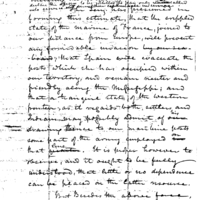 forming this estimate, that the crippled
state of the marine of France, joined to
our distance from Europe, will prevent
any formidable invasion by our sea-
board; that Spain will evacuate the
posts which she has occupied within
our territory, and remain neuter and
friendly along the Mississippi; and
that a tranquil state of the western
frontier, as it regards both settlers and
Indians may probably admit of
drawing thence to our maritime posts
some of the army employed
that It is proper however to
observe, and it ought to be fully
understood, that little or no dependence
can be placed on the latter resource.
But Besides the above force,